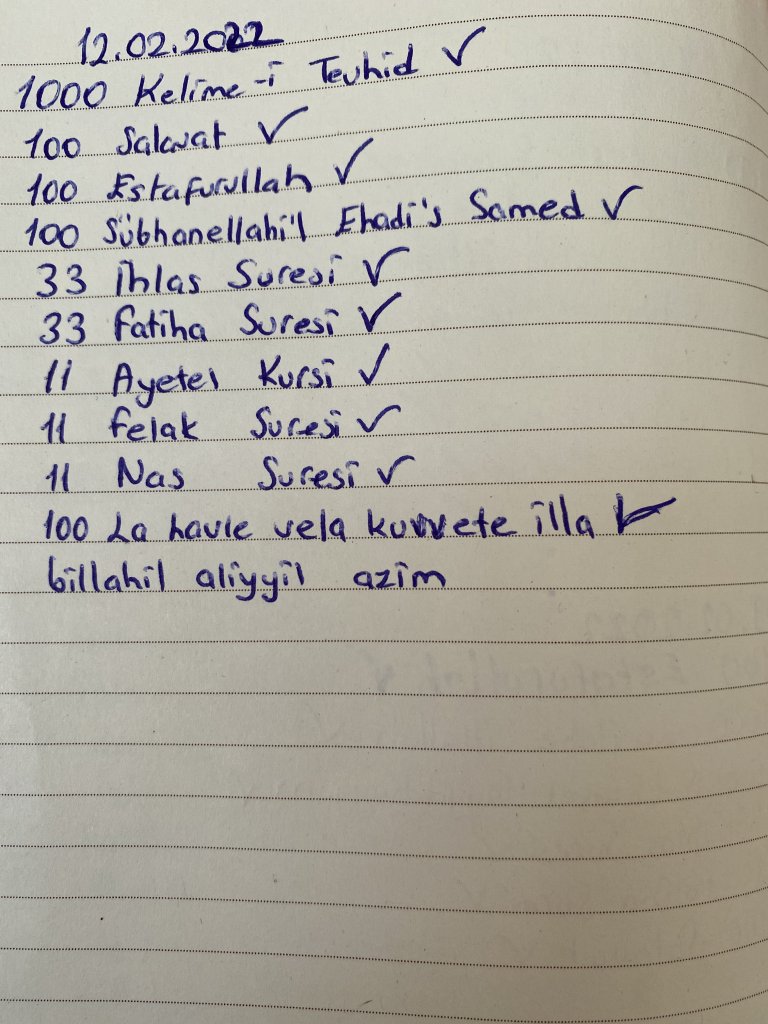 12.02.2022
1000 Kelime-i Tevhid ✓
100 Salavat ✓
100 Estafurullah ✓
100 Sübhanellahi'l Ehadi's Samed ✓
33 İhlas Suresi ✓
33 Fatiha Suresi ✓
11 Ayetel Kürsi ✓
11 Felak Suresi ✓
11 Nas Suresi ✓
100 La havle vela kuvvete illa ✓
billahil aliyyil azim